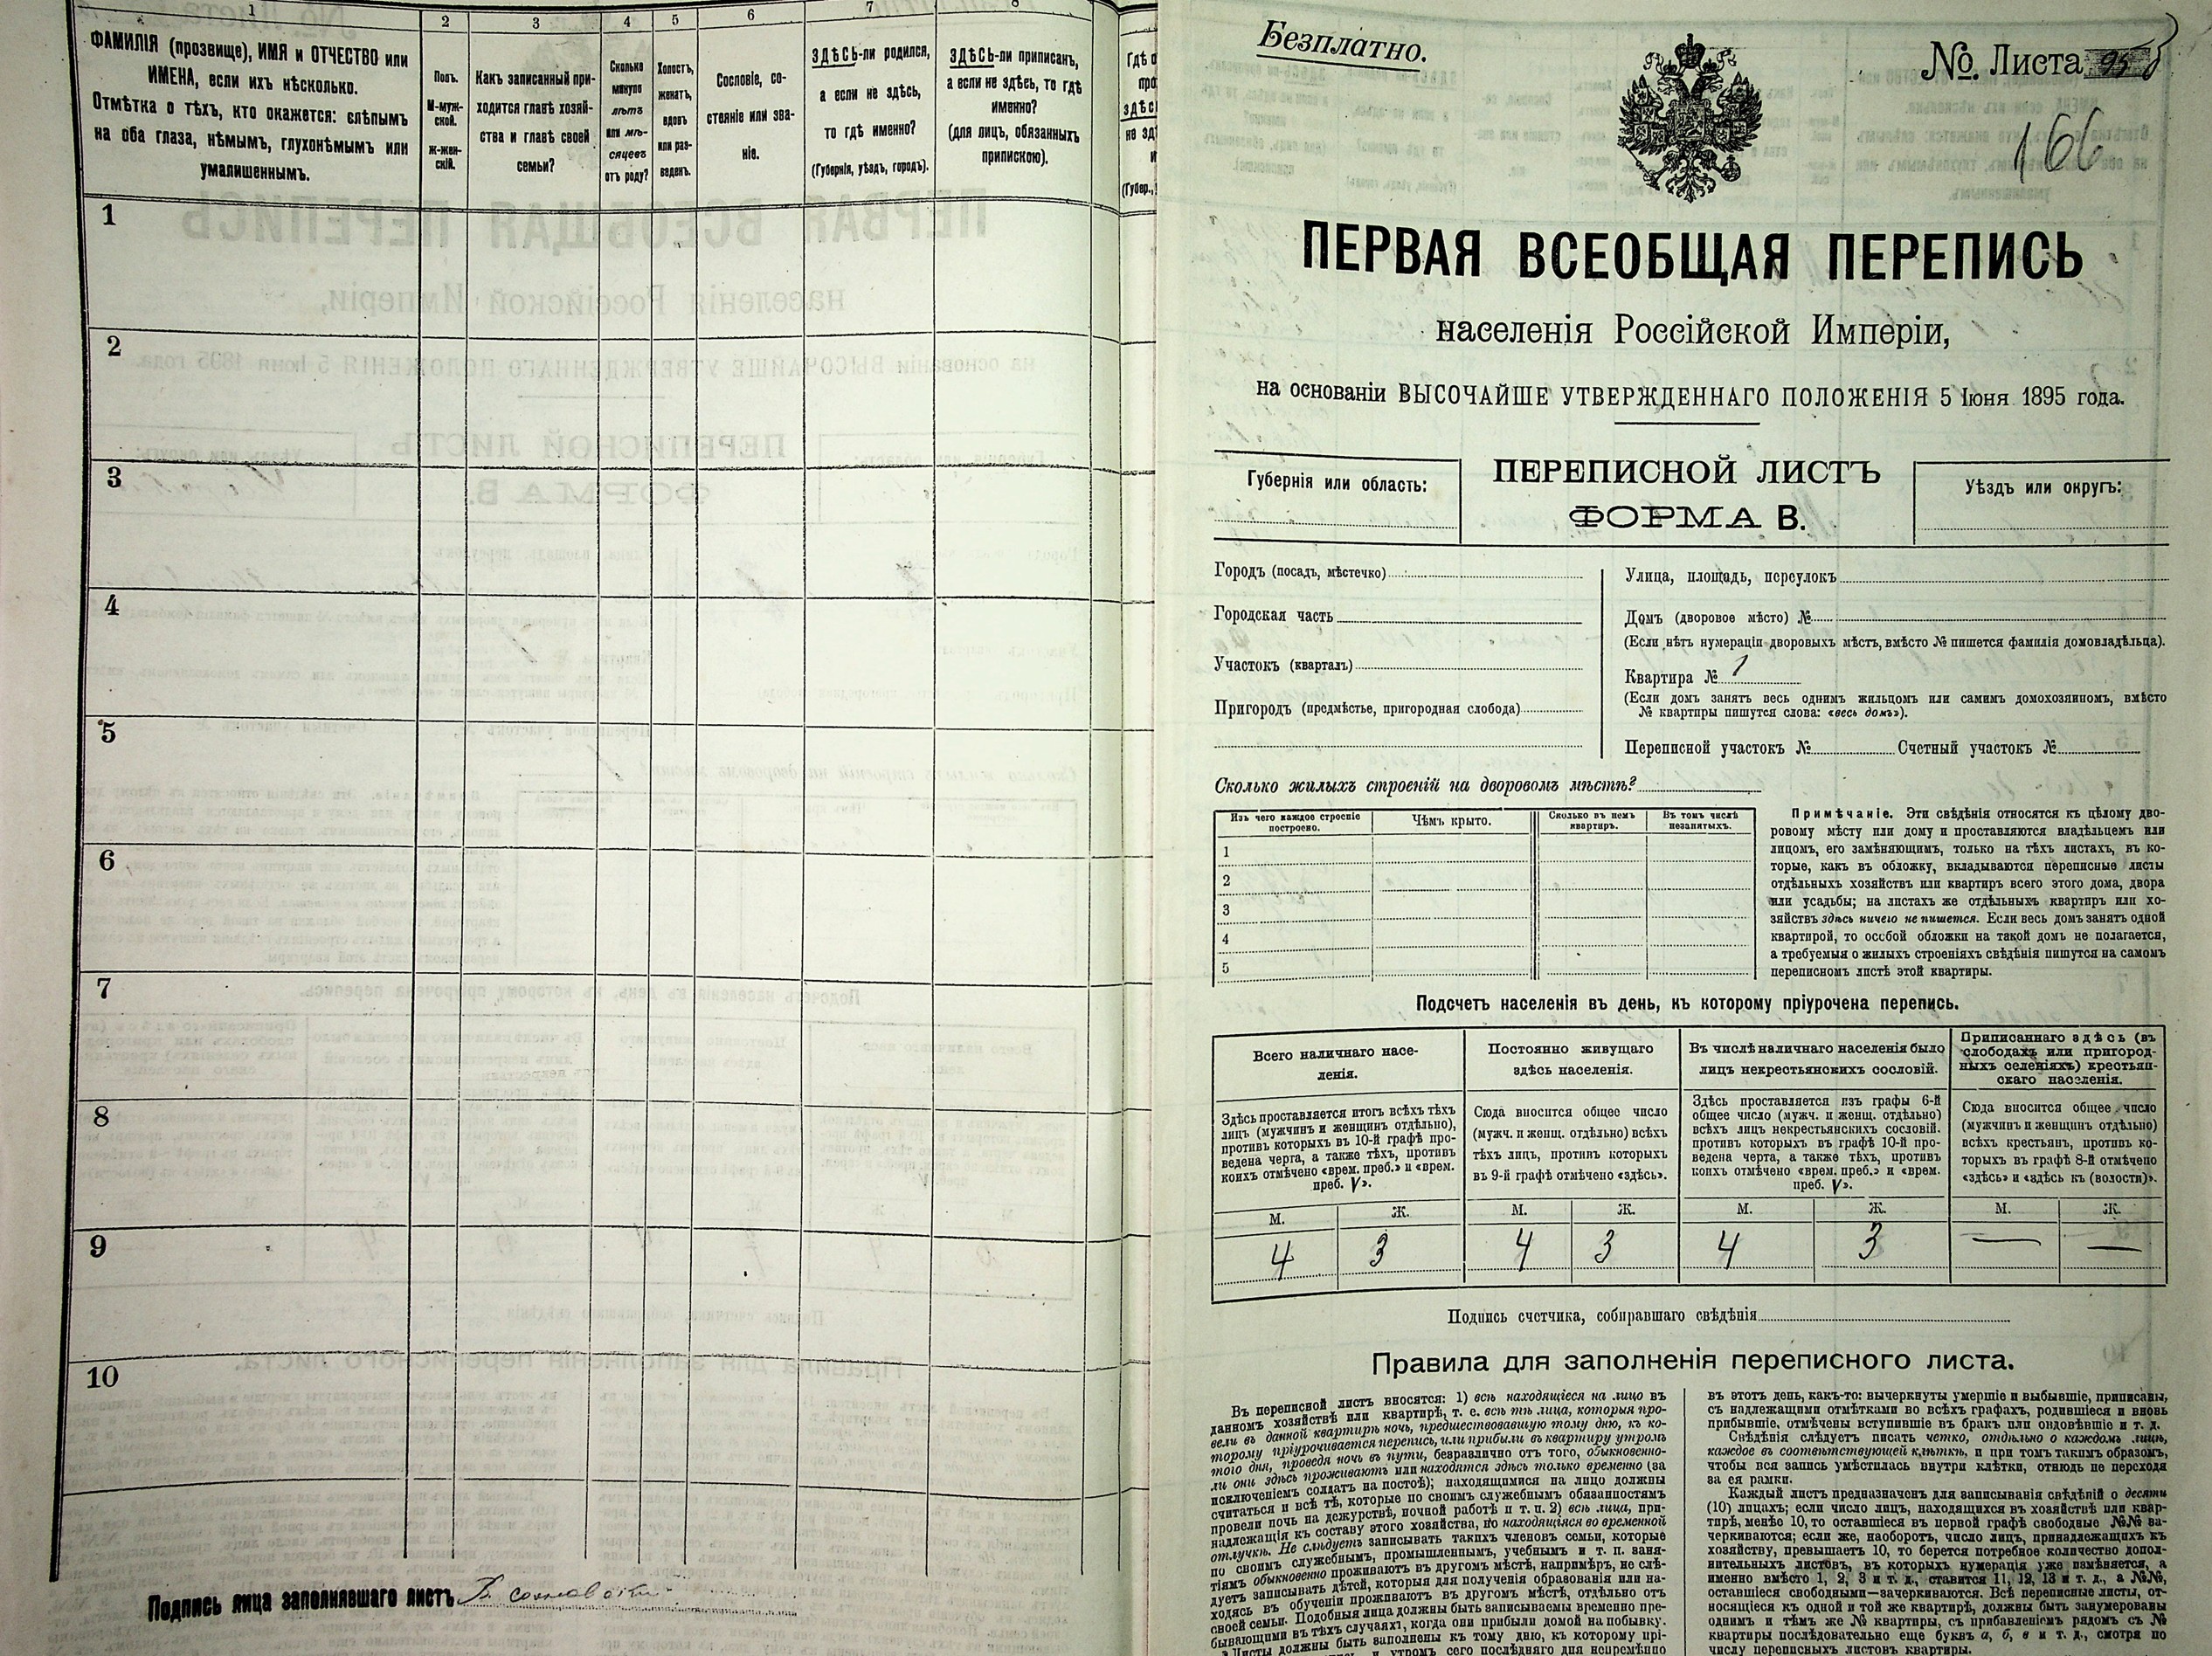 1 2 3 4 5 6 7 8
ФАМИЛІЯ (прозвище), ИМЯ и ОТЧЕСТВО или
ИМЕНА, если ихъ нѣсколько.
Отмѣтка о тѣхъ, кто окажется: слѣпымъ
на оба глаза, нѣмымъ, глухонѣмымъ или
умалишеннымъ.
Полъ.
М-муж-
ской.
ж-жен-
скій.
Какъ записанный при-
ходится главѣ хозяй-
ства и главѣ своей
семьи?
Сколько
минуло
лѣтъ
или мѣ-
сяцевъ
отъ роду?
Холостъ,
женатъ,
вдовъ
или раз-
веденъ.
Сословіе, со-
стояніе или зва-
ніе.
ЗДѢСЬ-ли родился,
а если не здѣсь,
то гдѣ именно?
(Губернія, уѣздъ, городъ).
ЗДѢСЬ-ли приписан,
а если не здѣсь, то гдѣ
именно?
(для лицъ, обязанныхъ
припискою).
1
2
3
4
5
6
7
8
9
10
Подпись лица заполнявшаго листъ
Безплатно.
№. Листа 95
166
ПЕРВАЯ ВСЕОБЩАЯ ПЕРЕПИСЬ
населенія Россійской Имперіи,
на основаніи ВЫСОЧАЙШЕ УТВЕРЖДЕННАГО ПОЛОЖЕНІЯ 5 Іюня 1895 года.
Губернія или область:
ПЕРЕПИСНОЙ ЛИСТЪ
ФОРМА В.
Уѣздъ или округъ:
Городъ (посадъ, мѣстечко)
Городская часть
Участокъ (кварталъ)
Пригородъ (предмѣстье, пригородная слобода)
Улица, площадь, переулокъ
Домъ (дворовое мѣсто) №
(Если нѣтъ нумераціи дворовыхъ мѣстъ, вмѣсто № пишется фамилія домовладѣльца).
Квартира № 1
(Если домъ занятъ весь однимъ жильцомъ или самимъ домохозяиномъ, вмѣсто
№ квартиры пишутся слова: «весь домъ»).
Переписной участокъ № Счетный участокъ №
Сколько жилыхъ строеній на дворовомъ мѣстѣ?
Изъ чего каждое строеніе
построено.
Чѣмъ крыто.
Сколько въ немъ
квартиръ.
Въ томъ числѣ
незанятыхъ.
1
2
3
4
5
Примѣчаніе. Эти свѣдѣнія относятся къ цѣлому дво-
ровому мѣсту или дому и проставляются владѣльцемъ или
лицомъ, его замѣняющимъ, только на тѣхъ листахъ, въ ко-
торые, какъ въ обложку, вкладываются переписные листы
отдѣльныхъ хозяйствъ или квартиръ всего этого дома, двора
или усадьбы; на листахъ же отдѣльныхъ квартиръ или хо-
зяйствъ здѣсь ничего не пишется. Если весь домъ занятъ одной
квартирой, то особой обложки на такой домъ не полагается,
а требуемыя о жилыхъ строеніяхъ свѣдѣнія пишутся на самомъ
переписномъ листѣ этой квартиры.
Подсчетъ населенія въ день, къ которому пріурочена перепись.
Всего наличнаго насе-
ленія.
Постоянно живущаго
здѣсь населенія.
Въ числѣ наличнаго населенія было
лицъ некрестьянскихъ сословій.
Приписаннаго здѣсь (въ
слободахъ или пригород-
ныхъ селеніяхъ) крестьян-
скаго населенія.
Здѣсь проставляется итогъ всѣхъ тѣхъ
лицъ (мужчинъ и женщинъ отдѣльно),
противъ которыхъ въ 10-й графѣ про-
ведена черта, а также тѣхъ, противъ
коихъ отмѣчено «врем. преб.» и «врем.
преб. V».
Сюда вносится общее число
(мужч. и женщ. отдѣльно) всѣхъ
тѣхъ лицъ, противъ которыхъ
въ 9-й графѣ отмѣчено «здѣсь».
Здѣсь проставляется изъ графы 6-й
общее число (мужч. и женщ. отдѣльно)
всѣхъ лицъ некрестьянскихъ сословій.
противъ которыхъ въ графѣ 10-й про-
ведена черта, а также тѣхъ, противъ
коихъ отмѣчено «врем. преб.» и «врем.
преб. V».
Сюда вносится общее число
(мужчинъ и женщинъ отдѣльно)
всѣхъ крестьянъ, противъ ко-
торыхъ въ графѣ 8-й отмѣчено
«здѣсь» и «здѣсь къ (волости)».
М. Ж. М. Ж. М. Ж. М. Ж.
4 3 4 3 4 3 — —
Подпись счетчика, собиравшаго свѣдѣнія
Правила для заполненія переписного листа.
Въ переписной листъ вносятся: 1) всѣ находящіеся на лицо въ
данномъ хозяйствѣ или квартирѣ, т. е. всѣ тѣ лица, которыя про-
вели въ данной квартирѣ ночь, предшествовавшую тому дню, къ ко-
торому пріурочивается перепись, или прибыли въ квартиру утромъ
того дня, проведя ночь въ пути, безразлично отъ того, обыкновенно-
ли они здѣсь проживаютъ или находятся здѣсь только временно (за
исключеніемъ солдатъ на постоѣ); находящимися на лицо должны
считаться и всѣ тѣ, которые по своимъ служебнымъ обязанностямъ
провели ночь на дежурствѣ, ночной работѣ и т. п. 2) всѣ лица, при-
надлежащія къ составу этого хозяйства, но находящіяся во временной
отлучкѣ. Не слѣдуетъ записывать такихъ членовъ семьи, которые
по своимъ служебнымъ, промышленнымъ, учебнымъ и т. п. заня-
тіямъ обыкновенно проживаютъ въ другомъ мѣстѣ, напримѣръ, не слѣ-
дуетъ записывать дѣтей, которыя для полученія образованія или на-
ходясь въ обученіи проживаютъ въ другомъ мѣстѣ, отдѣльно отъ
своей семьи. Подобныя лица должны быть записываемы временно пре-
бывающими въ тѣхъ случаяхъ, когда они прибыли домой на побывку.
Листы должны быть заполнены къ тому дню, къ которому прі-
утромъ сего послѣдняго дня непремѣнно
въ этотъ день, какъ-то: вычеркнуты умершіе и выбывшіе, приписаны,
съ надлежащими отмѣтками во всѣхъ графахъ, родившіеся и вновь
прибывшіе, отмѣчены вступившіе въ бракъ или овдовѣвшіе и т. д.
Свѣдѣнія слѣдуетъ писать четко, отдѣльно о каждомъ лицѣ,
каждое въ соотвѣтствующей клѣткѣ, и при томъ такимъ образомъ,
чтобы вся запись умѣстилась внутри клѣтки, отнюдь не переходя
за ея рамки.
Каждый листъ предназначенъ для записыванія свѣдѣній о десяти
(10) лицахъ; если число лицъ, находящихся въ хозяйствѣ или квар-
тирѣ, менѣе 10, то оставшіеся въ первой графѣ свободные №№ за-
черкиваются; если же, наоборотъ, число лицъ, принадлежащихъ къ
хозяйству, превышаетъ 10, то берется потребное количество допол-
нительныхъ листовъ, въ которыхъ нумерація уже измѣняется, а
именно вмѣсто 1, 2, 3 и т. д., ставится 11, 12, 13 и т. д., а №№,
оставшіеся свободными—зачеркиваются. Всѣ переписные листы, от-
носящіеся къ одной и той же квартирѣ, должны быть занумерованы
однимъ и тѣмъ же № квартиры, съ прибавленіемъ рядомъ съ №
квартиры послѣдовательно еще буквъ а, б, в и т. д., смотря по
числу переписныхъ листовъ квартиры.